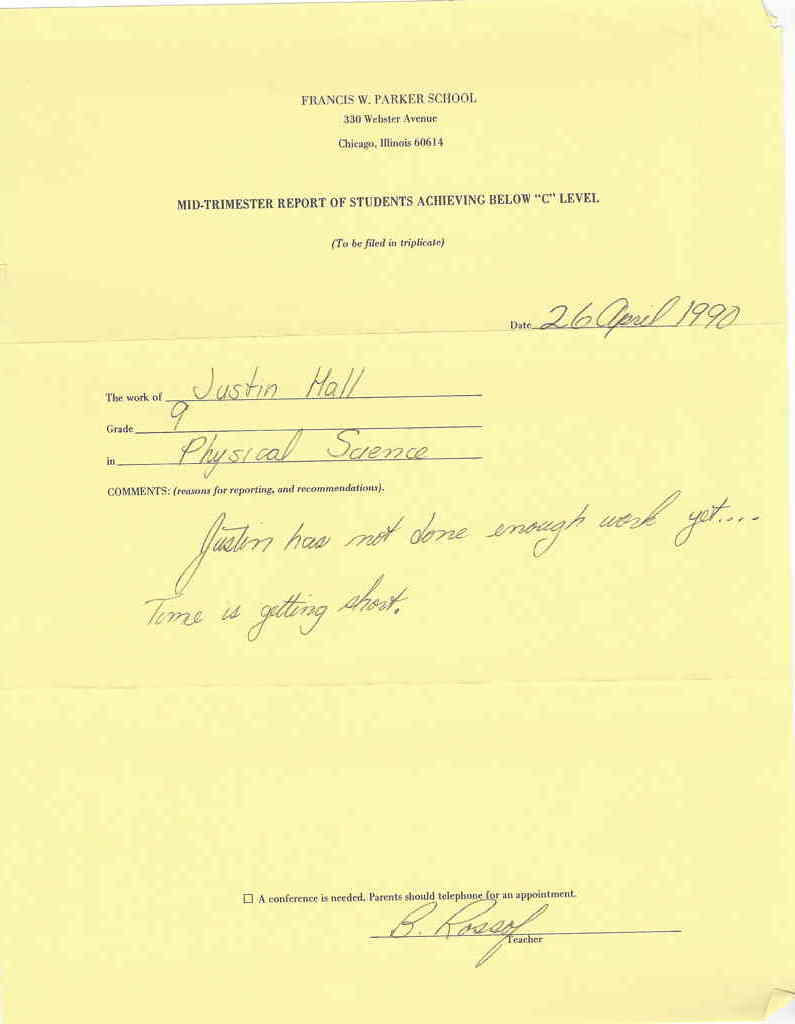 FRANCIS W. PARKER SCHOOL
330 Webster Avenue
Chicago, Illinois 60614
MID-TRIMESTER REPORT OF STUDENTS ACHIEVING BELOW "C" LEVEL
(To be filed in triplicate)
Date 26 April 1990
The work of Justin Hall
Grade 9
in Physical Science
COMMENTS: (reasons for reporting, and recommendations).
Justin has not done enough work yet....
Time is getting short.
☐ A conference is needed. Parents should telephone for an appointment.
B. Rossof
Teacher